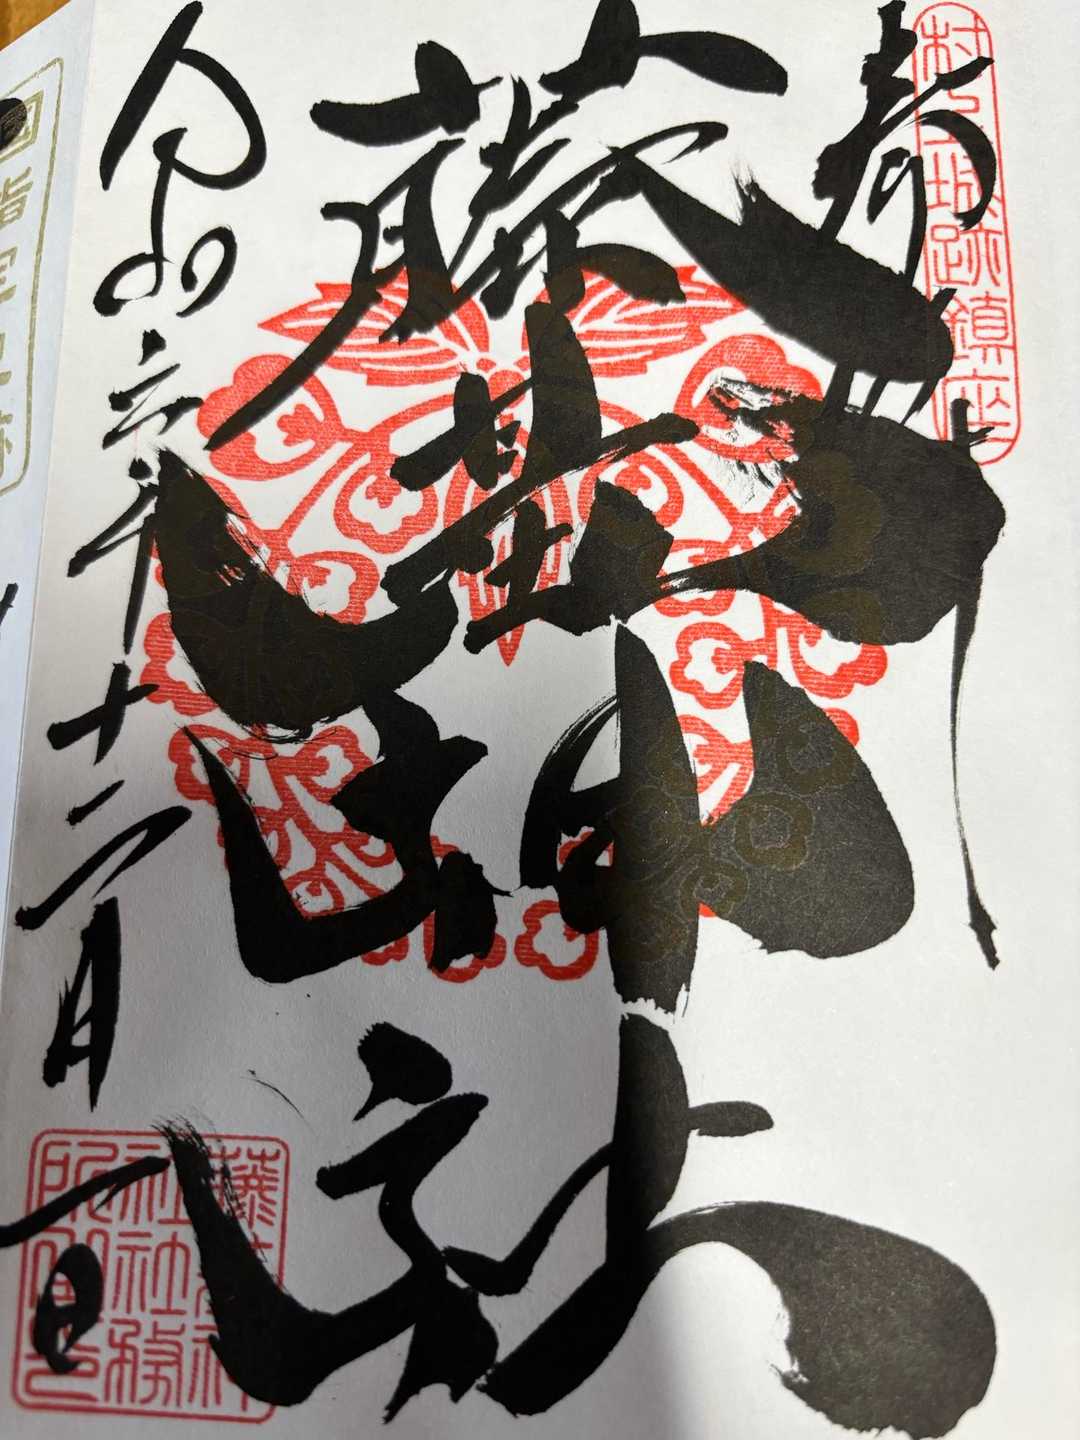 奉拝
村上城跡鎮座
藤基神社
令和六年十二月一日
藤基神
社社務
國指定史跡